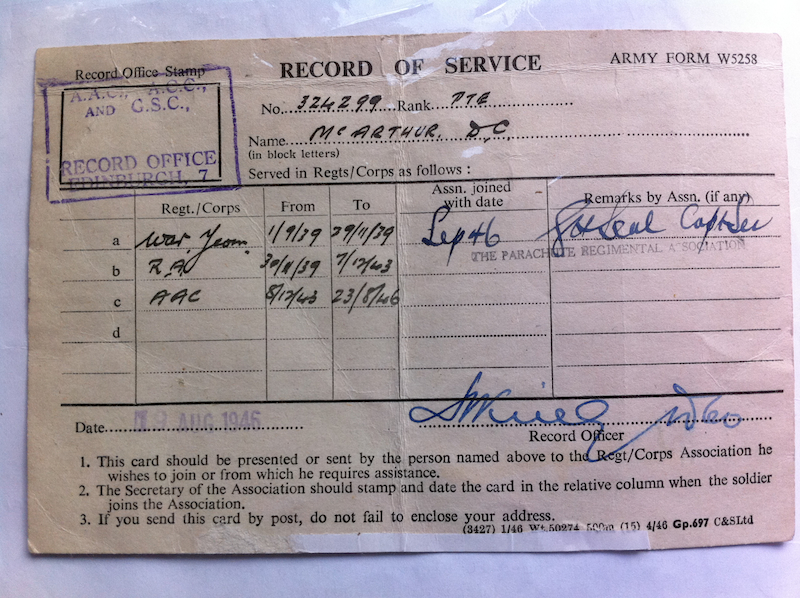 Record Office Stamp
RECORD OF SERVICE
ARMY FORM W5258
A.A.C., A.C.C.,
AND G.S.C.,
RECORD OFFICE
EDINBURGH, 7
No. 324299 Rank PTE
Name McARTHUR, D.C.
(in block letters)
Served in Regts/Corps as follows :
Regt./Corps From To Assn. joined with date Remarks by Assn. (if any)
a War. Yeom. 1/9/39 29/11/39 Sep 46
THE PARACHUTE REGIMENTAL ASSOCIATION
b R.A 30/11/39 7/12/43
c AAC 8/12/43 23/8/46
d
Date 19 AUG 1946
Record Officer
1. This card should be presented or sent by the person named above to the Regt/Corps Association he
wishes to join or from which he requires assistance.
2. The Secretary of the Association should stamp and date the card in the relative column when the soldier
joins the Association.
3. If you send this card by post, do not fail to enclose your address.
(3427) 1/46 Wt.50274 500m (15) 4/46 Gp.697 C&SLtd